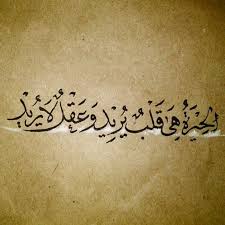 الحيرة هي قَلبٌ يُريد وَعَقلٌ لَا يُريد